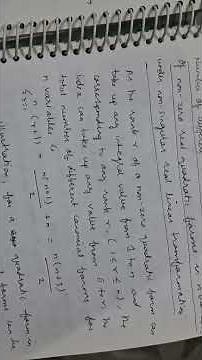 of non-zero real quadratic forms in n
under non singular real linear transformation
As the rank r of a non-zero quadratic form can
take up any integral value from 1 to n and
corresponding to any rank r, (1 ≤ r ≤ n), the
index can take up any value from 0 to r, the
total number of different canonical forms for
n variables is
n
Σ (r+1) = n(n+1)/2 + n = n(n+3)/2
r=1
illustration, for a quadratic form in
forms can be